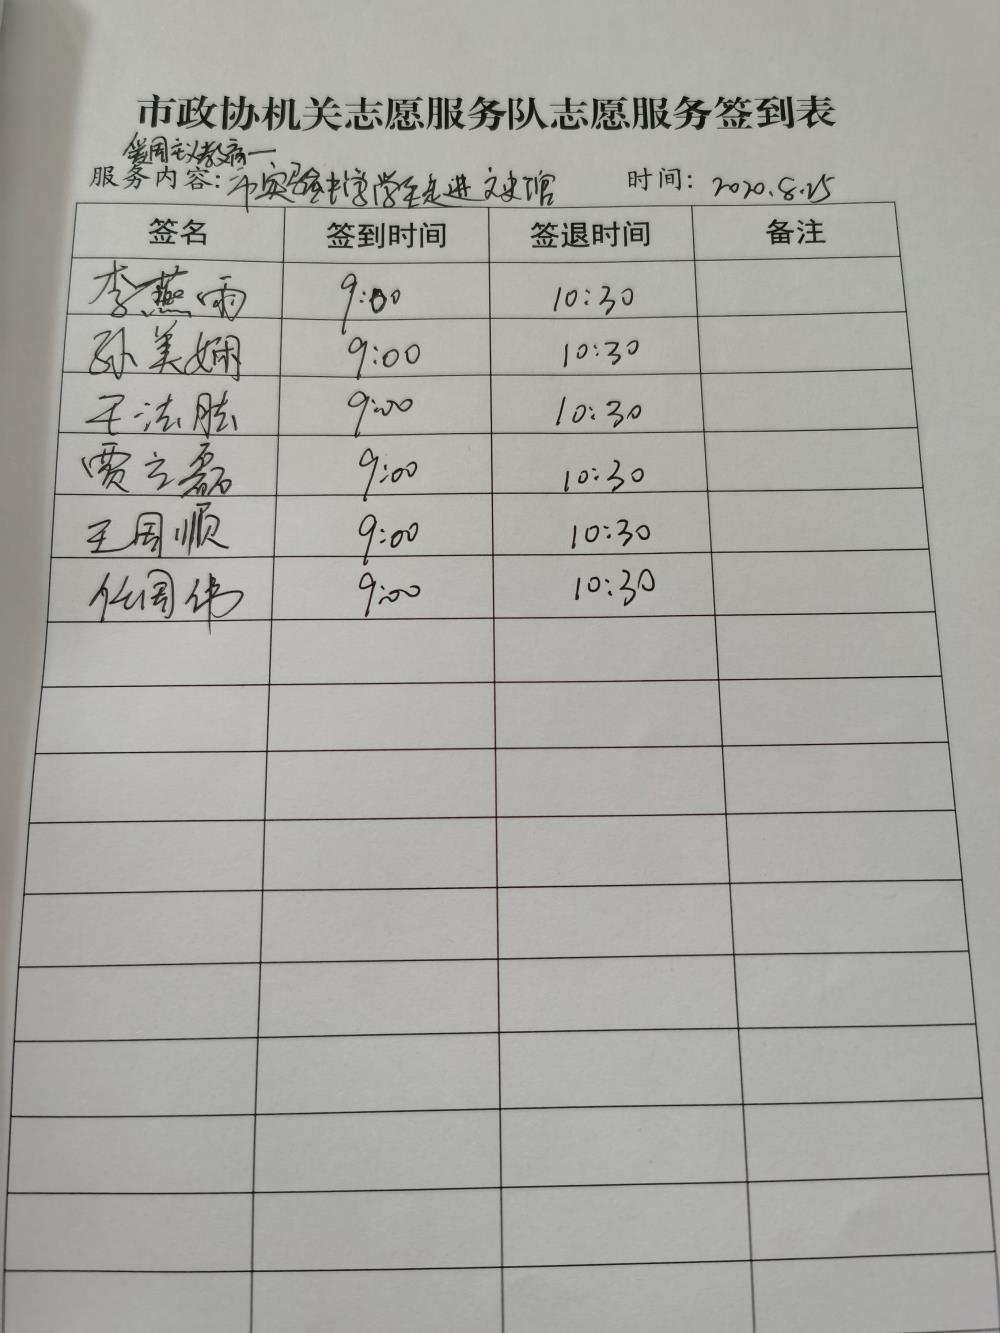 市政协机关志愿服务队志愿服务签到表
爱国主义教育一
服务内容：市实验中学学生走进文史馆 时间：2020.8.25
签名 签到时间 签退时间 备注
李燕雨 9:00 10:30
孙美娴 9:00 10:30
王法肱 9:00 10:30
贾立磊 9:00 10:30
王国顺 9:00 10:30
任国伟 9:00 10:30